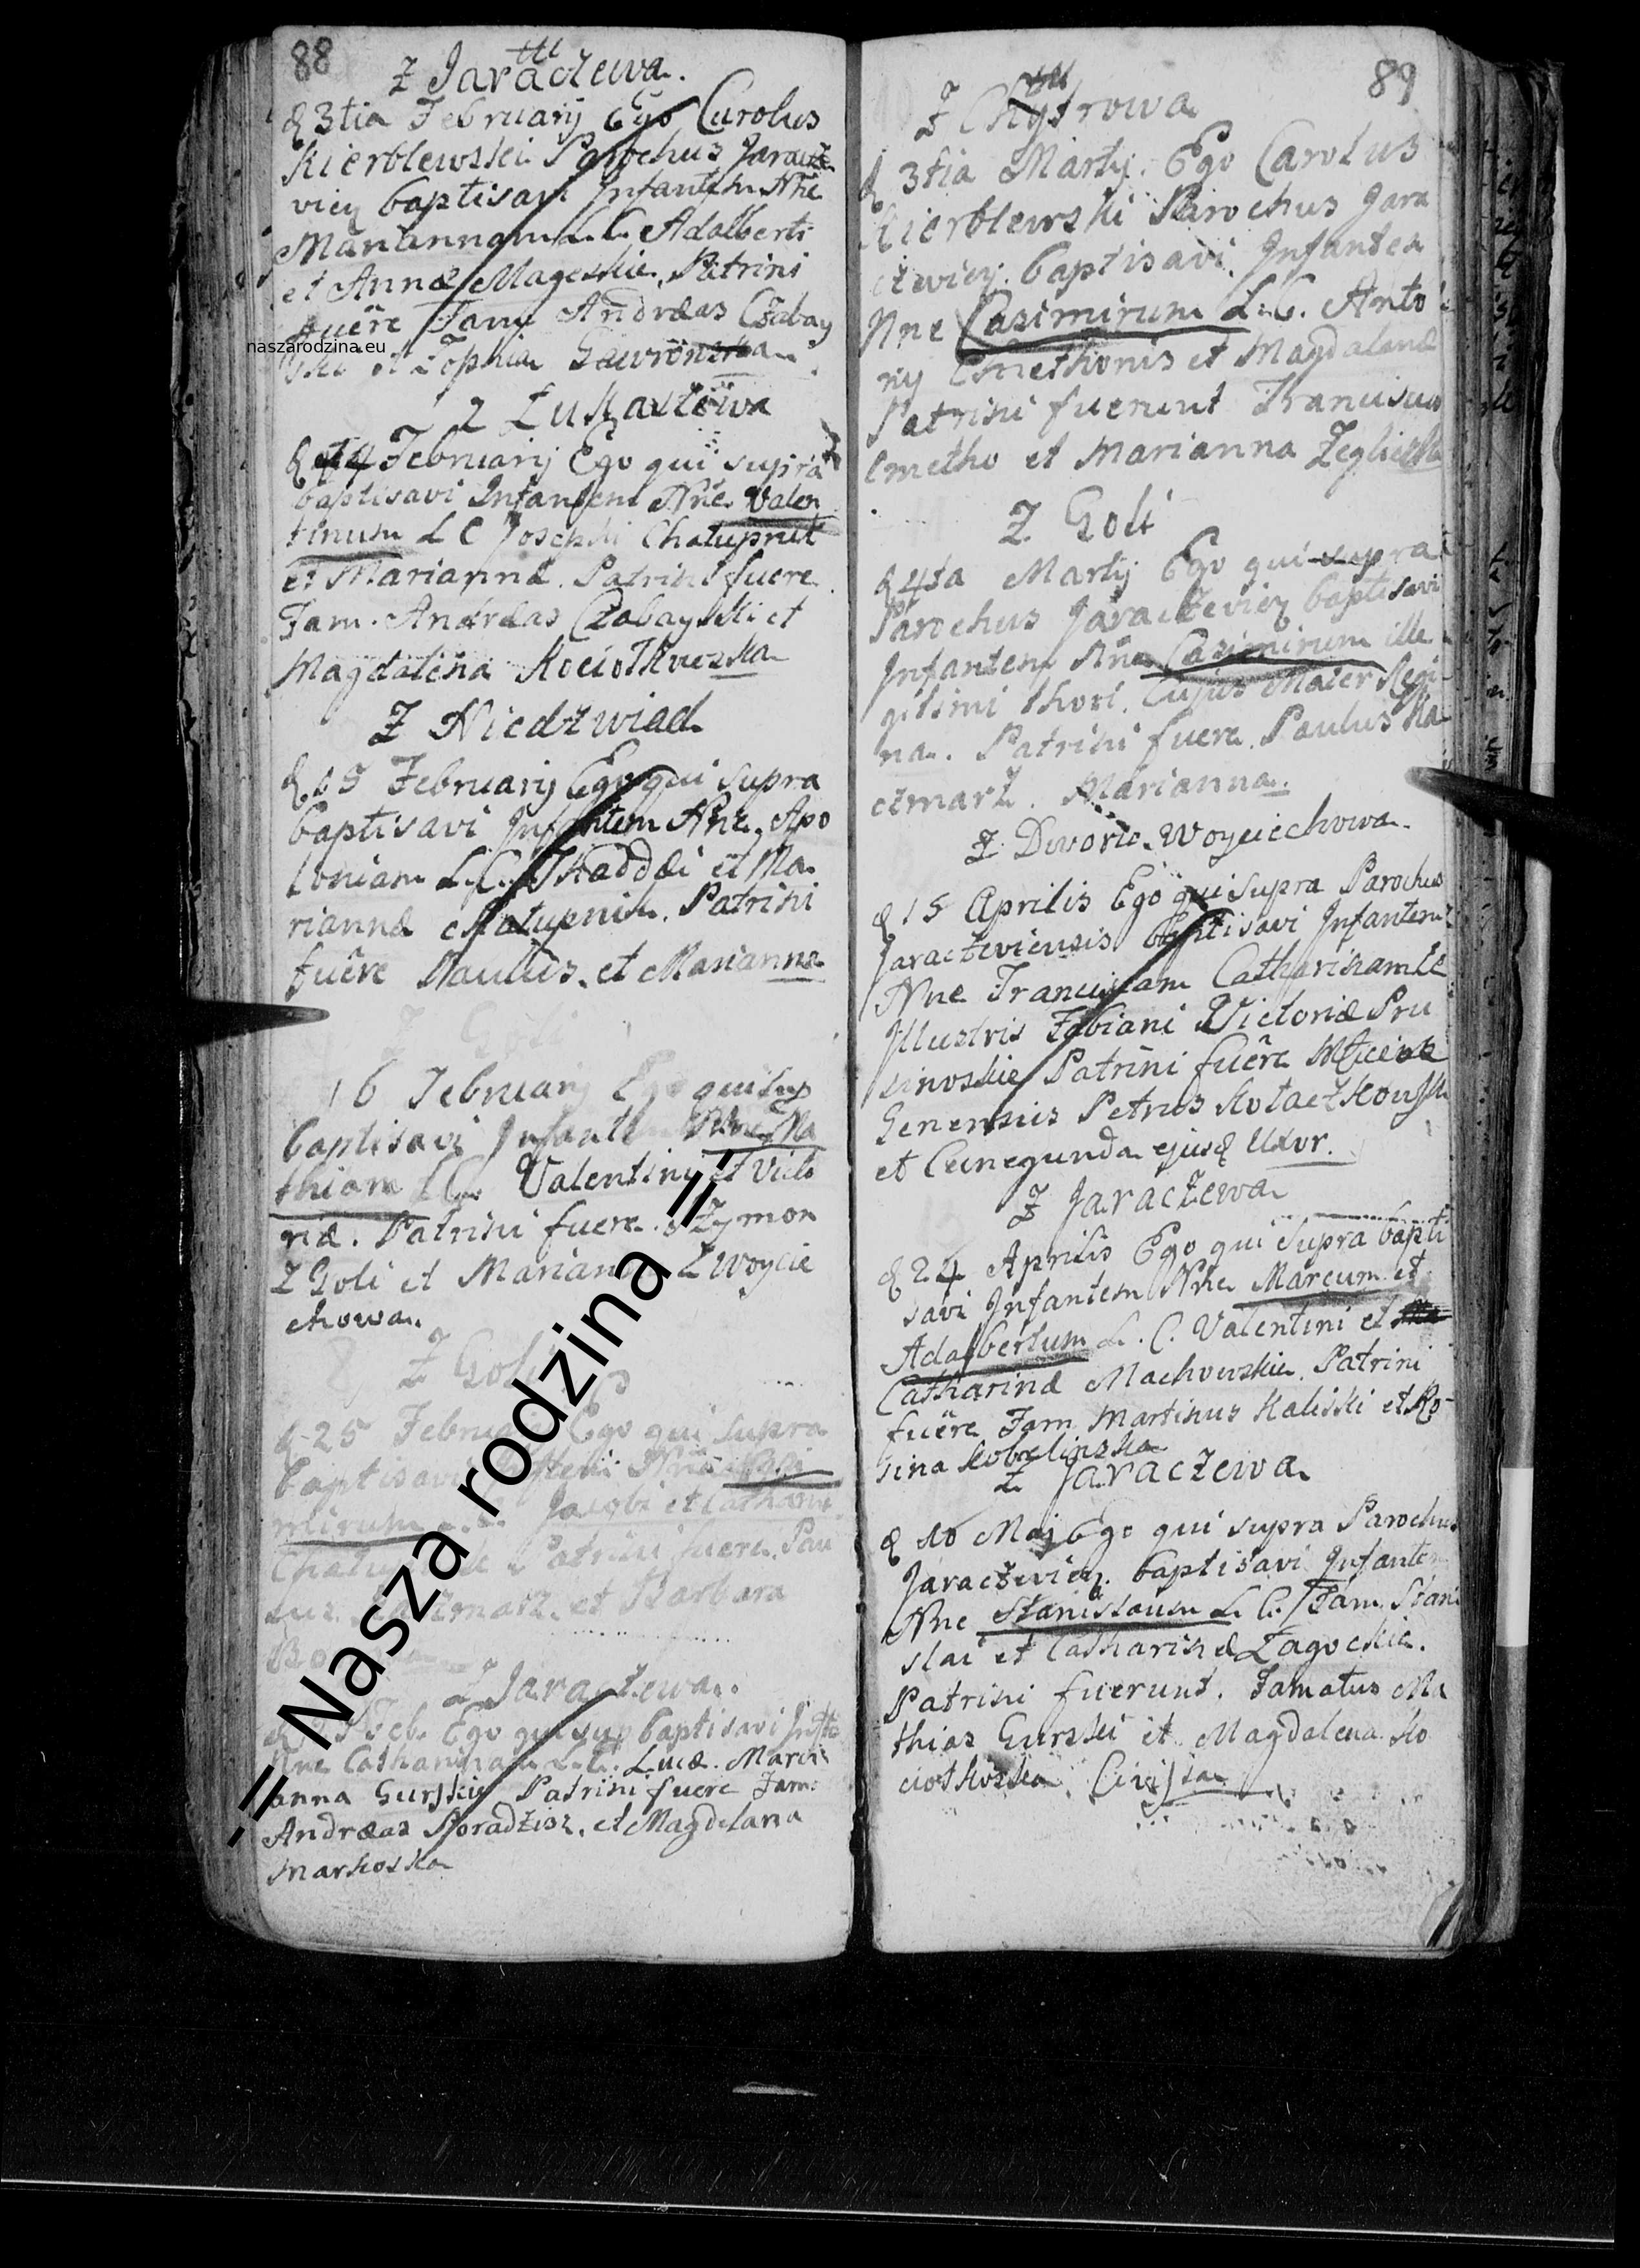 88
Z Jaraczewa.
d 3tia Februarij Ego Carolus
Kierblewski Parochus Jaracze
vien baptisavi Infantem Nne
Mariannam L. C. Adalberti
et Annæ Mageskie, Patrini
fuêre Fam Andræas Czabay
ski et Zophia Gawrońska
naszarodzina.eu
Z Łukaszewa
d 14 Februarij Ego qui supra
baptisavi Infantem Nne Valen
tinum L C Josephi Chałupnik
et Mariannæ. Patrini fuere
Fam. Andræas Czabayski et
Magdalena
Z Niedzwiad
d 15 Februarij Ego qui supra
baptisavi Infantem Nne. Apo
loniam L. C. Thaddæi et Ma
riannæ Chałupnik. Patrini
fuêre Paulus. et Marianna
Z Goli
16 Februarij Ego qui sup
baptisavi Infantem Nne Ma
thiam L C. Valentini et Victo
riæ. Patrini fuere. Szymon
Z Goli et Marianna Z Woycie
chowa.
Z Goli
d 25 Februarij Ego qui supra
baptisavi Nne Casi
mirum L. C. Jacobi et Catharinæ
Patrini fuere. Pau
lus et Barbara
Z Jaraczewa.
Feb. Ego qui sup baptisavi Infte
Nne Catharinam L. C. Lucæ. Mari
anna Gurskie Patrini fuere Fam.
Andræas et Magdelana
Markoska
= Nasza rodzina =
89
Z Chytrowa
d 3tia Martij. Ego Carolus
Kierblewski Parochus Jara
czevien. baptisavi Infantem
Nne Casimirum L. C. Anto
nij Cmethonis et Magdalenæ
Patrini fuerunt Franciscus
Cmetho et Marianna
Z Goli
d 4ta Martij Ego qui supra
Parochus Jaraczevien baptisavi
Infantem Nne Casimirum ille
gitimi thori. Cujus Mater Regi
na. Patrini fuere. Paulus Ka
czmarz. Marianna.
Z Dworu Woyciechowa.
d 15 Aprilis Ego qui supra Parochus
Jaraczeviensis baptisavi Infantem
Nne Franciscam Catharinam LC
Illustris Fabiani Victoriæ Pru
sinoskie Patrini fuêre
Generosus Petrus Kołaczkowski
et Cunegunda ejusq Uxor.
Z Jaraczewa
d 24 Aprilis Ego qui supra bapti
savi Infantem Nne Marcum et
Adalbertum L. C. Valentini et
Catharinæ Machowskie. Patrini
fuêre Fam. Martinus Kaliski et Re
gina Kobelinska
Z Jaraczewa.
d 10 Maj Ego qui supra Parochus
Jaraczevien. baptisavi Infantem
Nne Stanislaum L. C. Fam. Stani
slai et Catharinæ Zagockie.
Patrini fuerunt. Famatus Ma
thias Gurski et Magdalena Ko
ciołkoska